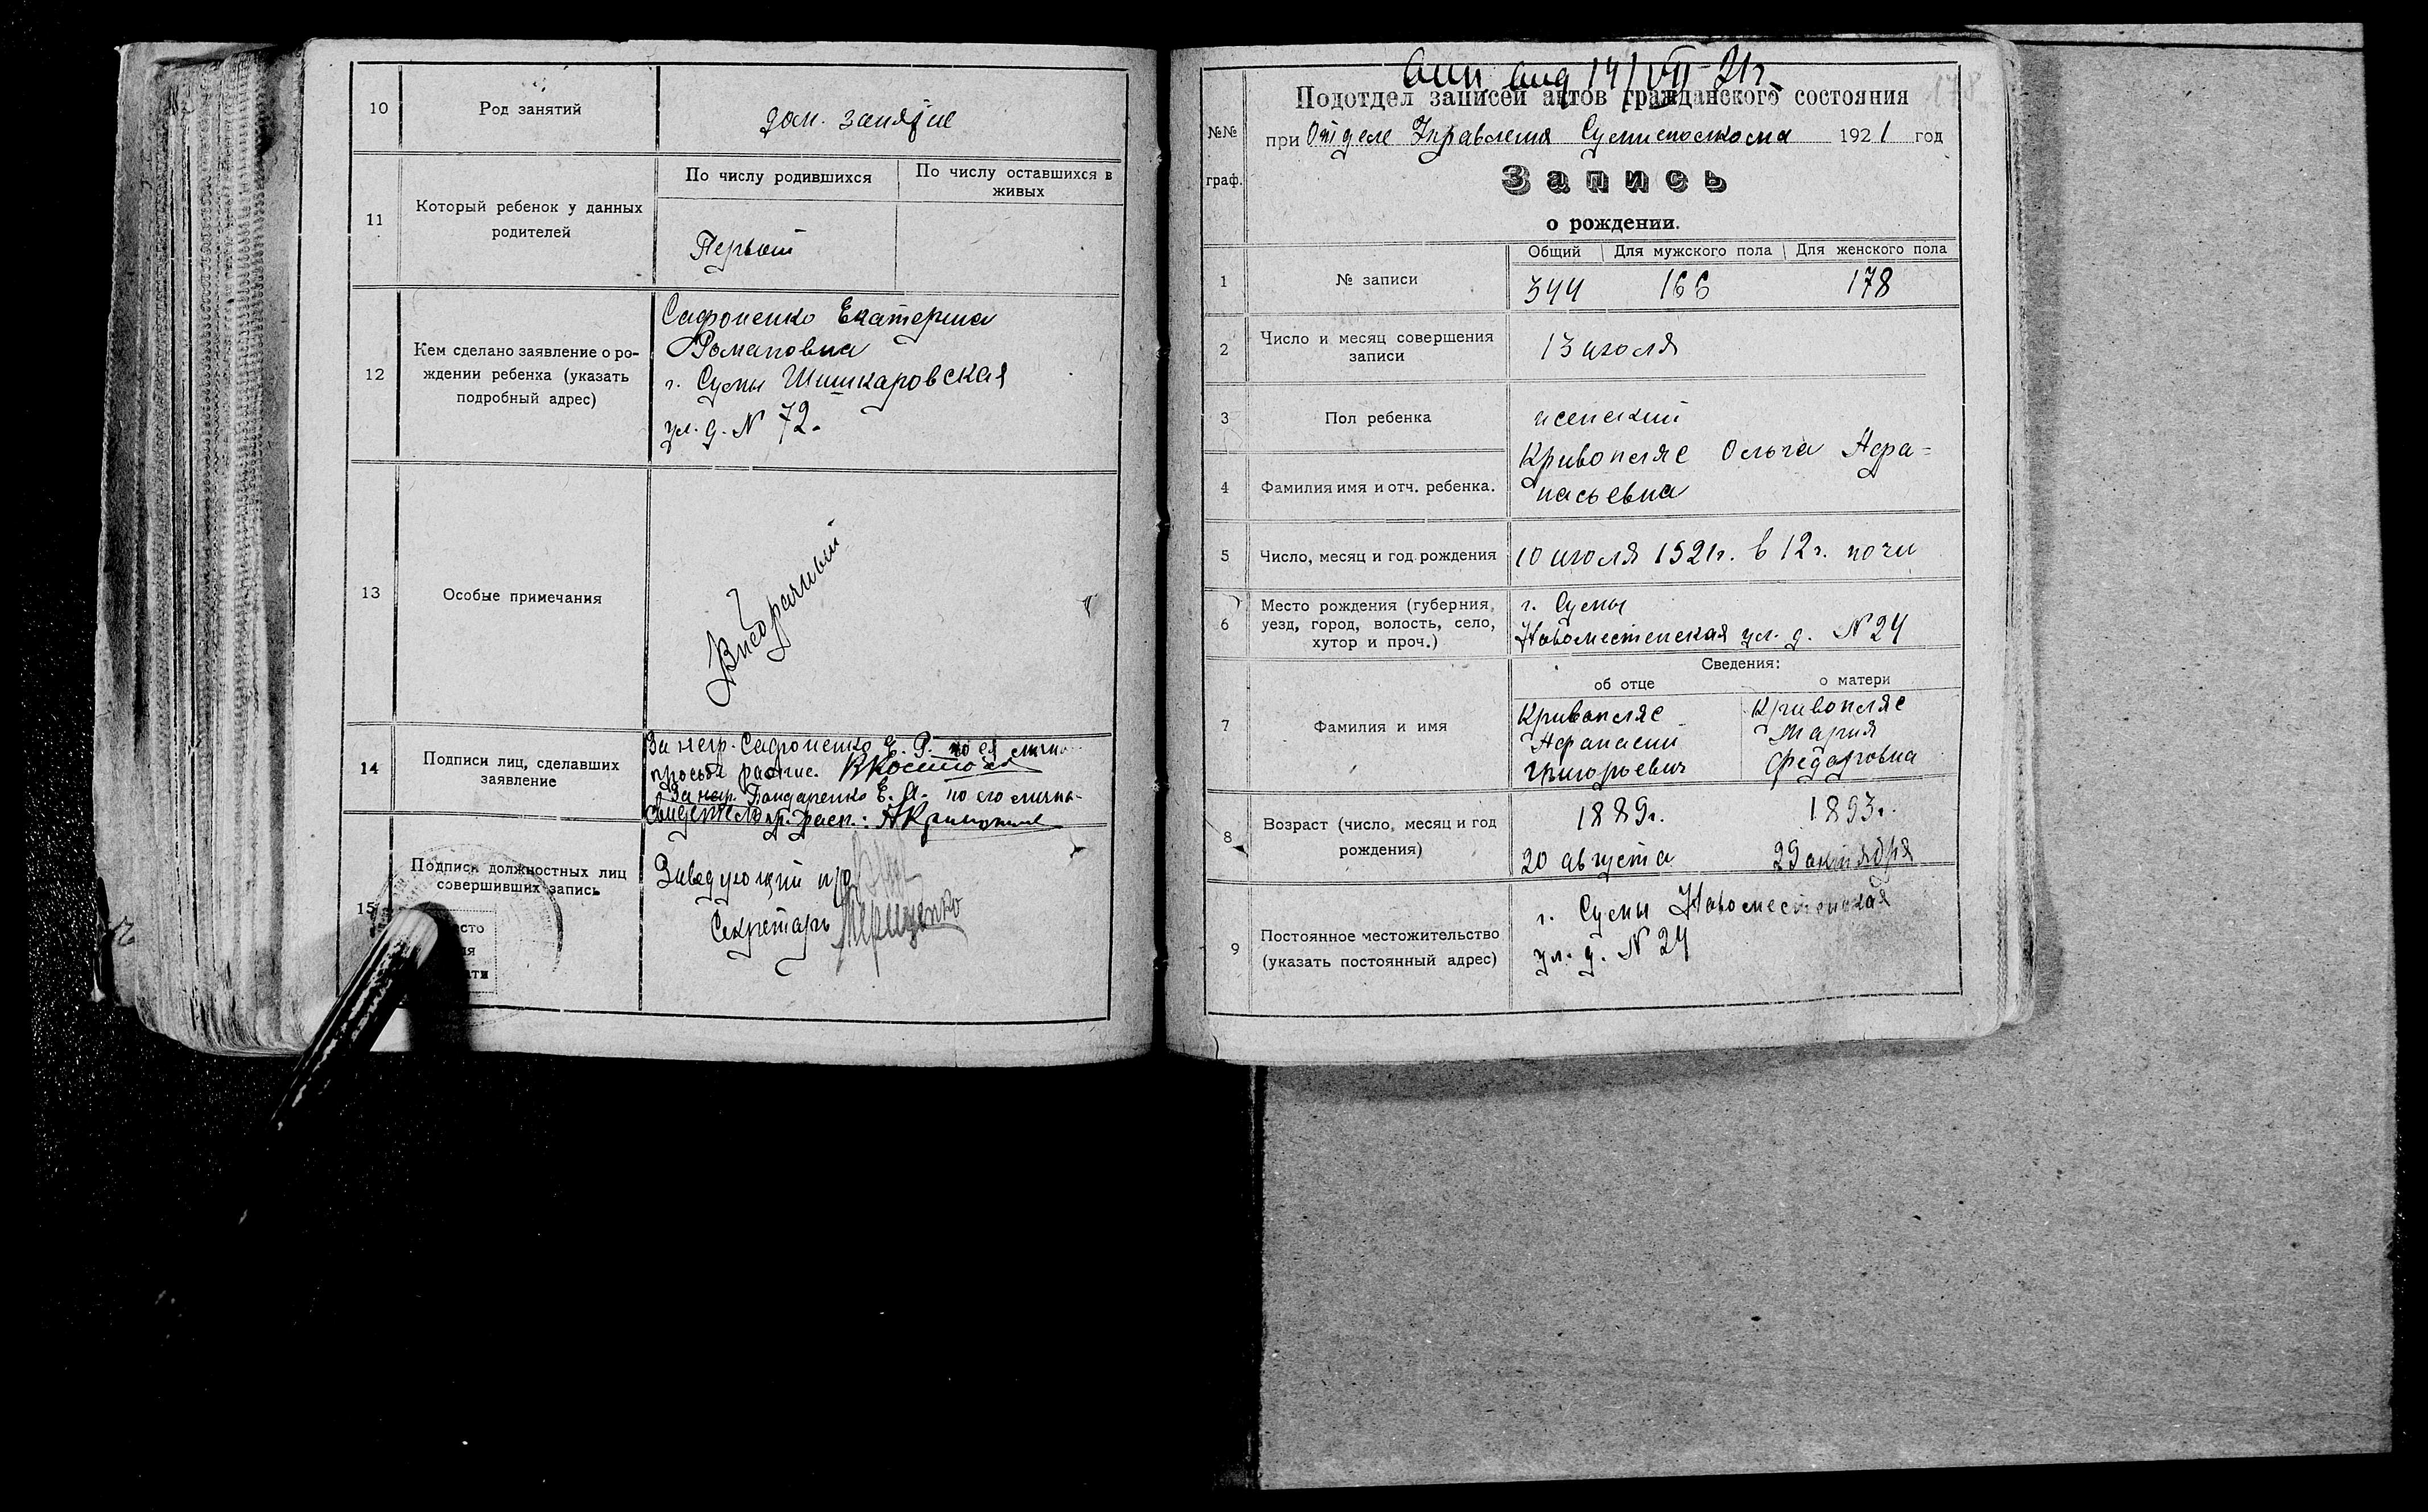 10
Род занятий
дом. занятие
11
Который ребенок у данных
родителей
По числу родившихся
По числу оставшихся в
живых
Первый
12
Кем сделано заявление о ро-
ждении ребенха (указать
подробный адрес)
Сафоненко Екатерина
Романовна
г. Сумы Шишкаровская
ул. д. № 72.
13
Особые примечания
Внебрачный
14
Подписи лиц, сделавших
заявление
За негр. Сафоненко Е. Р. по ея лично
просьбе распис.
За негр. Бондаренко Е. Я. по его лично
15
Подписи должностных лиц
совершивших запись
Заведующий п/о
Секретарь Терещенко
14/VII-21г.
№№
граф.
Подотдел записей актов гражданского состояния
при Отделе Управления Сумисполкома 1921 год
Запись
о рождении.
1
№ записи
Общий
Для мужского пола
Для женского пола
344
166
178
2
Число и месяц совершения
записи
13 июля
3
Пол ребенка
женский
4
Фамилия имя и отч. ребенка.
Кривопляс Ольга Афа-
насьевна
5
Число, месяц и год рождения
10 июля 1921г. в 12г. ночи
6
Место рождения (губерния,
уезд, город, волость, село,
хутор и проч.)
г. Сумы
Новоместенская ул. д. № 24
Сведения:
об отце
о матери
7
Фамилия и имя
Кривопляс
Афанасий
Григорьевич
Кривопляс
Мария
Федоровна
8
Возраст (число, месяц и год
рождения)
1889г.
20 августа
1893г.
29 октября
9
Постоянное местожительство
(указать постоянный адрес)
г. Сумы Новоместенская
ул. д. № 24